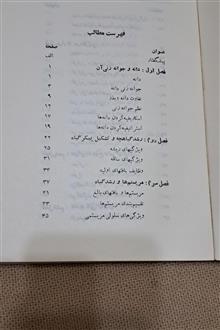 فهرست مطالب
عنوان
پیشگفتار الف
فصل اول : دانه و جوانه زنی آن ۱
دانه ۱
جوانه زنی دانه ۴
تفاوت دانه دیدز ۹
نظم جوانه زنی ۹
اسکاریفیه کردن دانه‌ها
استراتیفیه کردن دانه‌ها
فصل دوم : رشد گیاهچه و تشکیل پیکر گیاه ۲۲
ویژگیهای ریشه ۲۵
ویژگیهای ساقه ۳۱
وظایف بافتهای اولیه ۳۳
فصل سوم : مریستم‌ها و رشد گیاه
مریستم‌ها و بافتهای بالغ
تقسیم‌بندی مریستم‌ها
ویژگی‌های سلولی مریستمی ۴۵